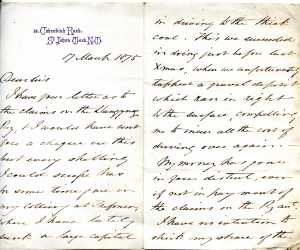 Carnbrook Road.
St Johns Wood. N.W.
17 March 1875
Dear Sir
I have your letter as to
the claims on the
& I would have sent
you a cheque on this
but every shilling
I could scrape has
for some time gone in
my colliery at
where I have lately
sunk a large capital
in driving to the thick
coal. This we succeeded
in doing just before last
Xmas, when we unfortunately
tapped a gravel deposit
which ran in right
to the surface, compelling
me to incur all the cost of
driving once again.
My money has gone
in your district, even
if not in payment of
the claims on the
I have no intention to
shirk my share of the